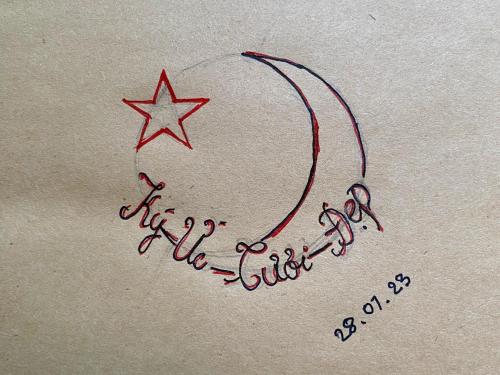 Ký-Ức-Tươi-Đẹp
28.01.23